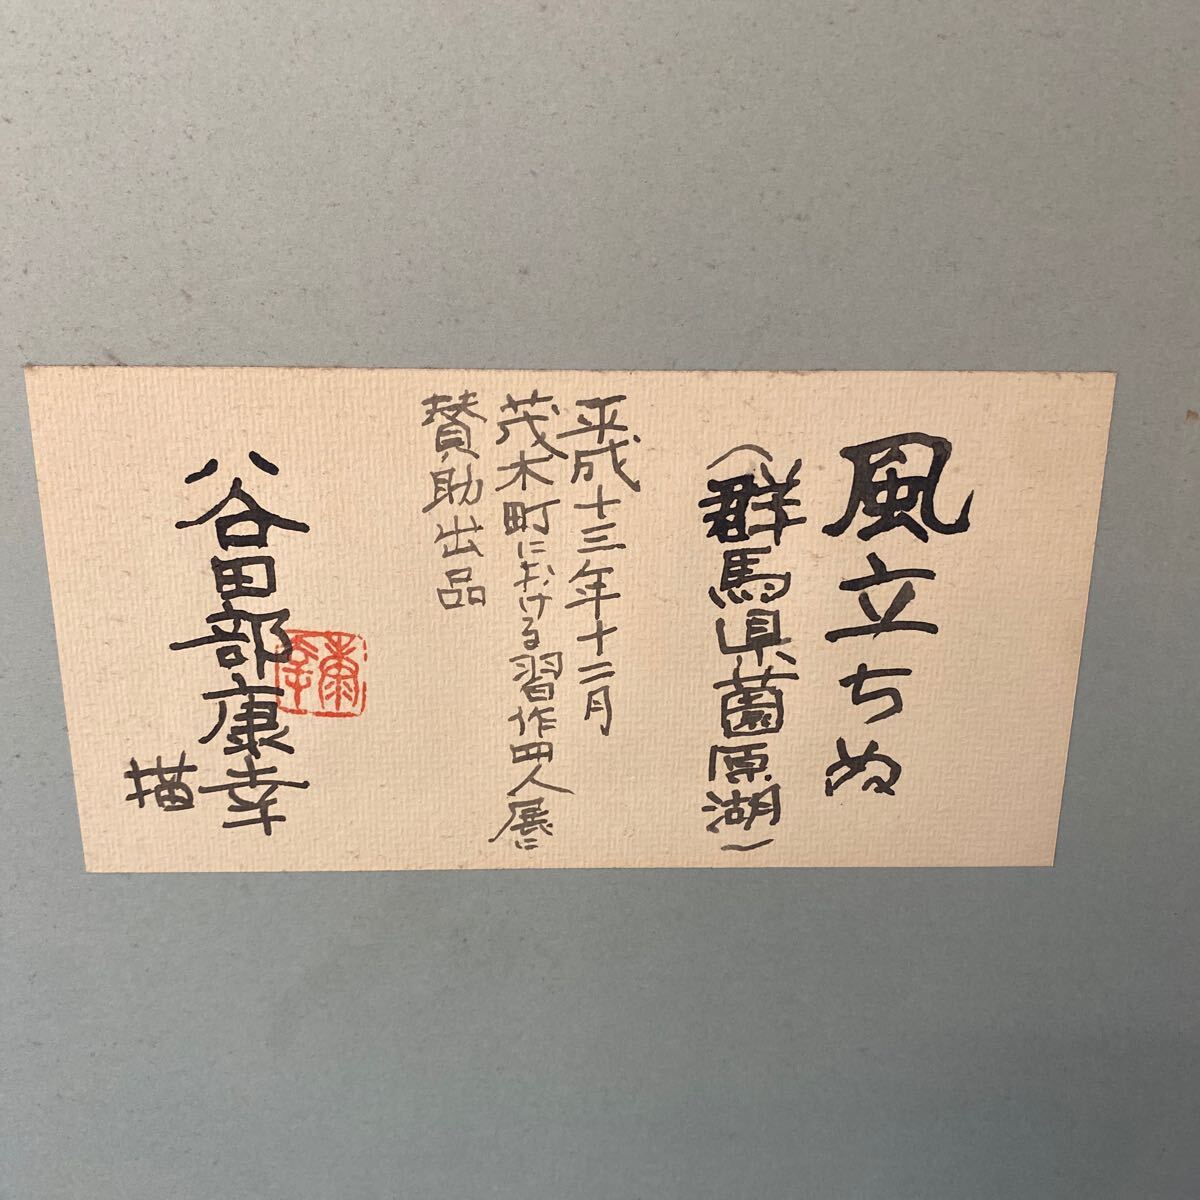 風立ちぬ
(群馬県薗原湖)
平成十三年十二月
茂木町における習作四人展に
賛助出品
谷田部康幸
描
康幸